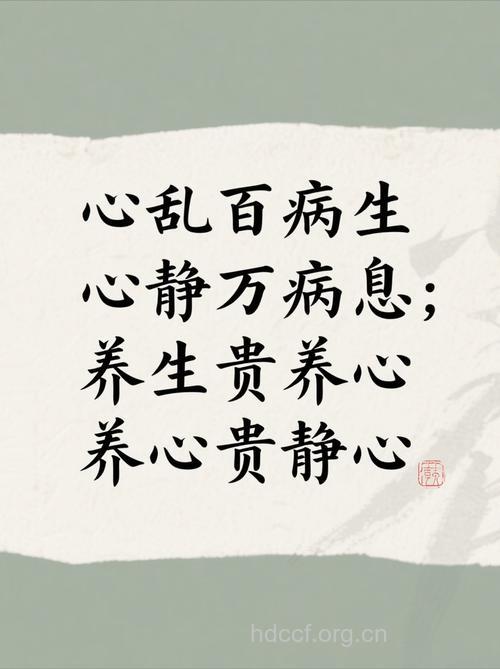 心乱百病生
心静万病息；
养生贵养心
养心贵静心
hdccf.org.cn